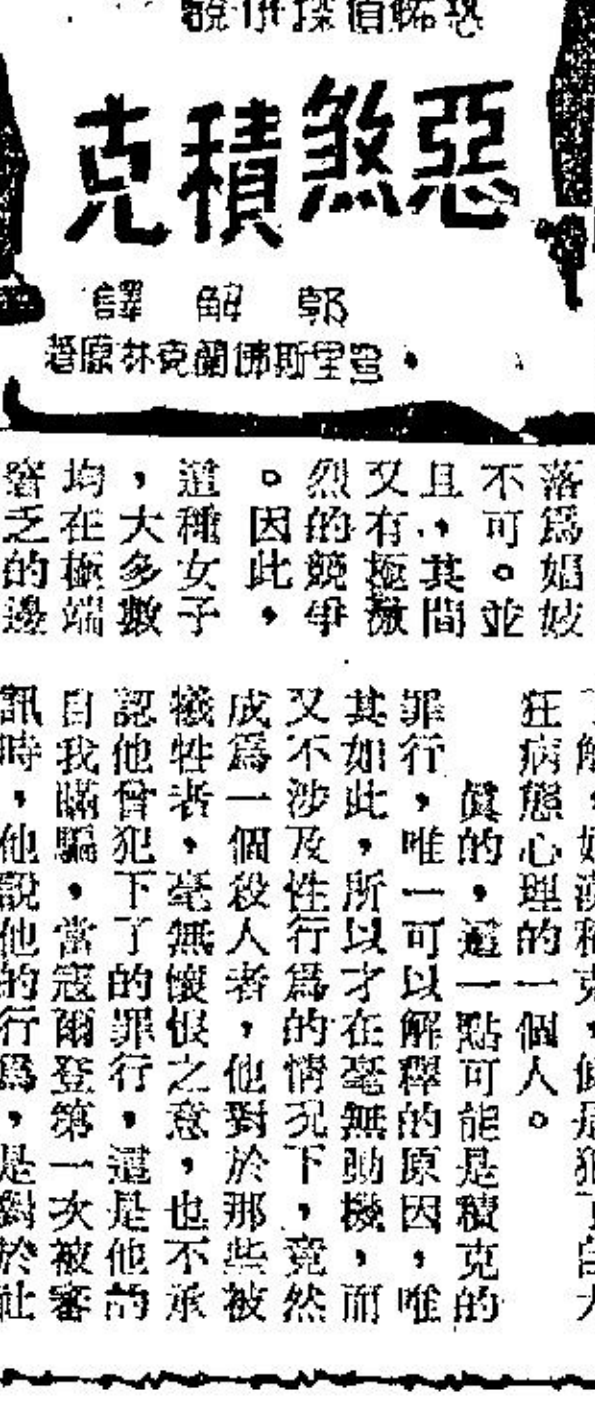 恐怖偵探伊貌
惡煞積克
郭解譯
里斯佛蘭克林原著
落爲娼妓
不可。並
且,其間
又有極激
烈的競爭
。因此,
這種女子
,大多數
均在極端
窘乏的邊
狂病態心理的一個人。
眞的,這一點可能是積克的
罪行,唯一可以解釋的原因,唯
其如此,所以才在毫無動機,而
又不涉及性行爲的情況下,竟然
成爲一個殺人者,他對於那些被
犧牲者,毫無懷恨之意,也不承
認他曾犯下了的罪行,這是他的
自我瞞騙,當寇爾登第一次被審
訊時,他說他的行爲,是對於社